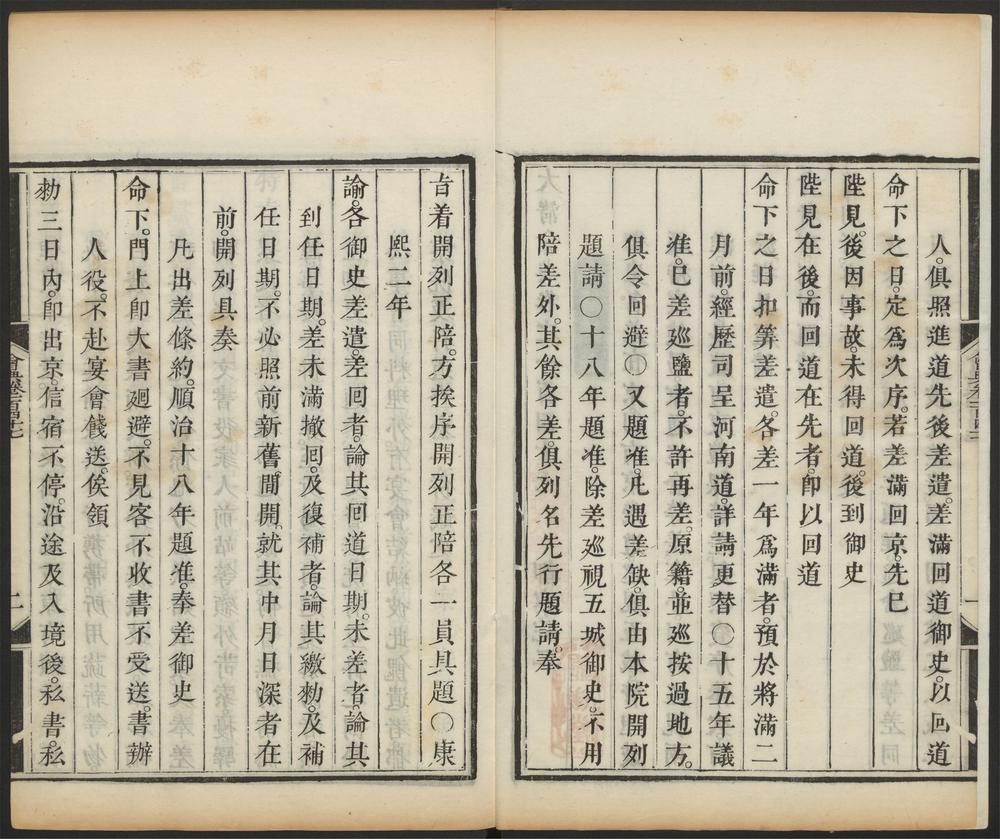 人。俱照進道先後差遣。差滿回道御史。以回道
命下之日。定爲次序。若差滿回京。先已
陛見。後因事故。未得回道。後到御史
陛見在後。而回道在先者。卽以回道
命下之日扣筭差遣。各差一年爲滿者。預於將滿二
月前。經歷司呈河南道。詳請更替〇十五年議
准。已差巡鹽者。不許再差。原籍。並巡按過地方。
俱令回避〇又題准。凡遇差缺。俱由本院開列
題請〇十八年題准。除差巡視五城御史。不用
陪差外。其餘各差。俱列名先行題請。奉
旨着開列正陪。方挨序開列正陪各一員具題〇康
熙二年
諭。各御史差遣。差回者。論其回道日期。未差者。論其
到任日期。差未滿撤回。及復補者。論其繳勅。及補
任日期。不必照前新舊間開。就其中月日深者在
前。開列具奏
凡出差條約。順治十八年題准。奉差御史
命下。門上卽大書廻避。不見客不收書不受送。書辦
人役。不赴宴會餞送。俟領
勅三日內。卽出京。信宿不停。沿途及入境後。私書。私